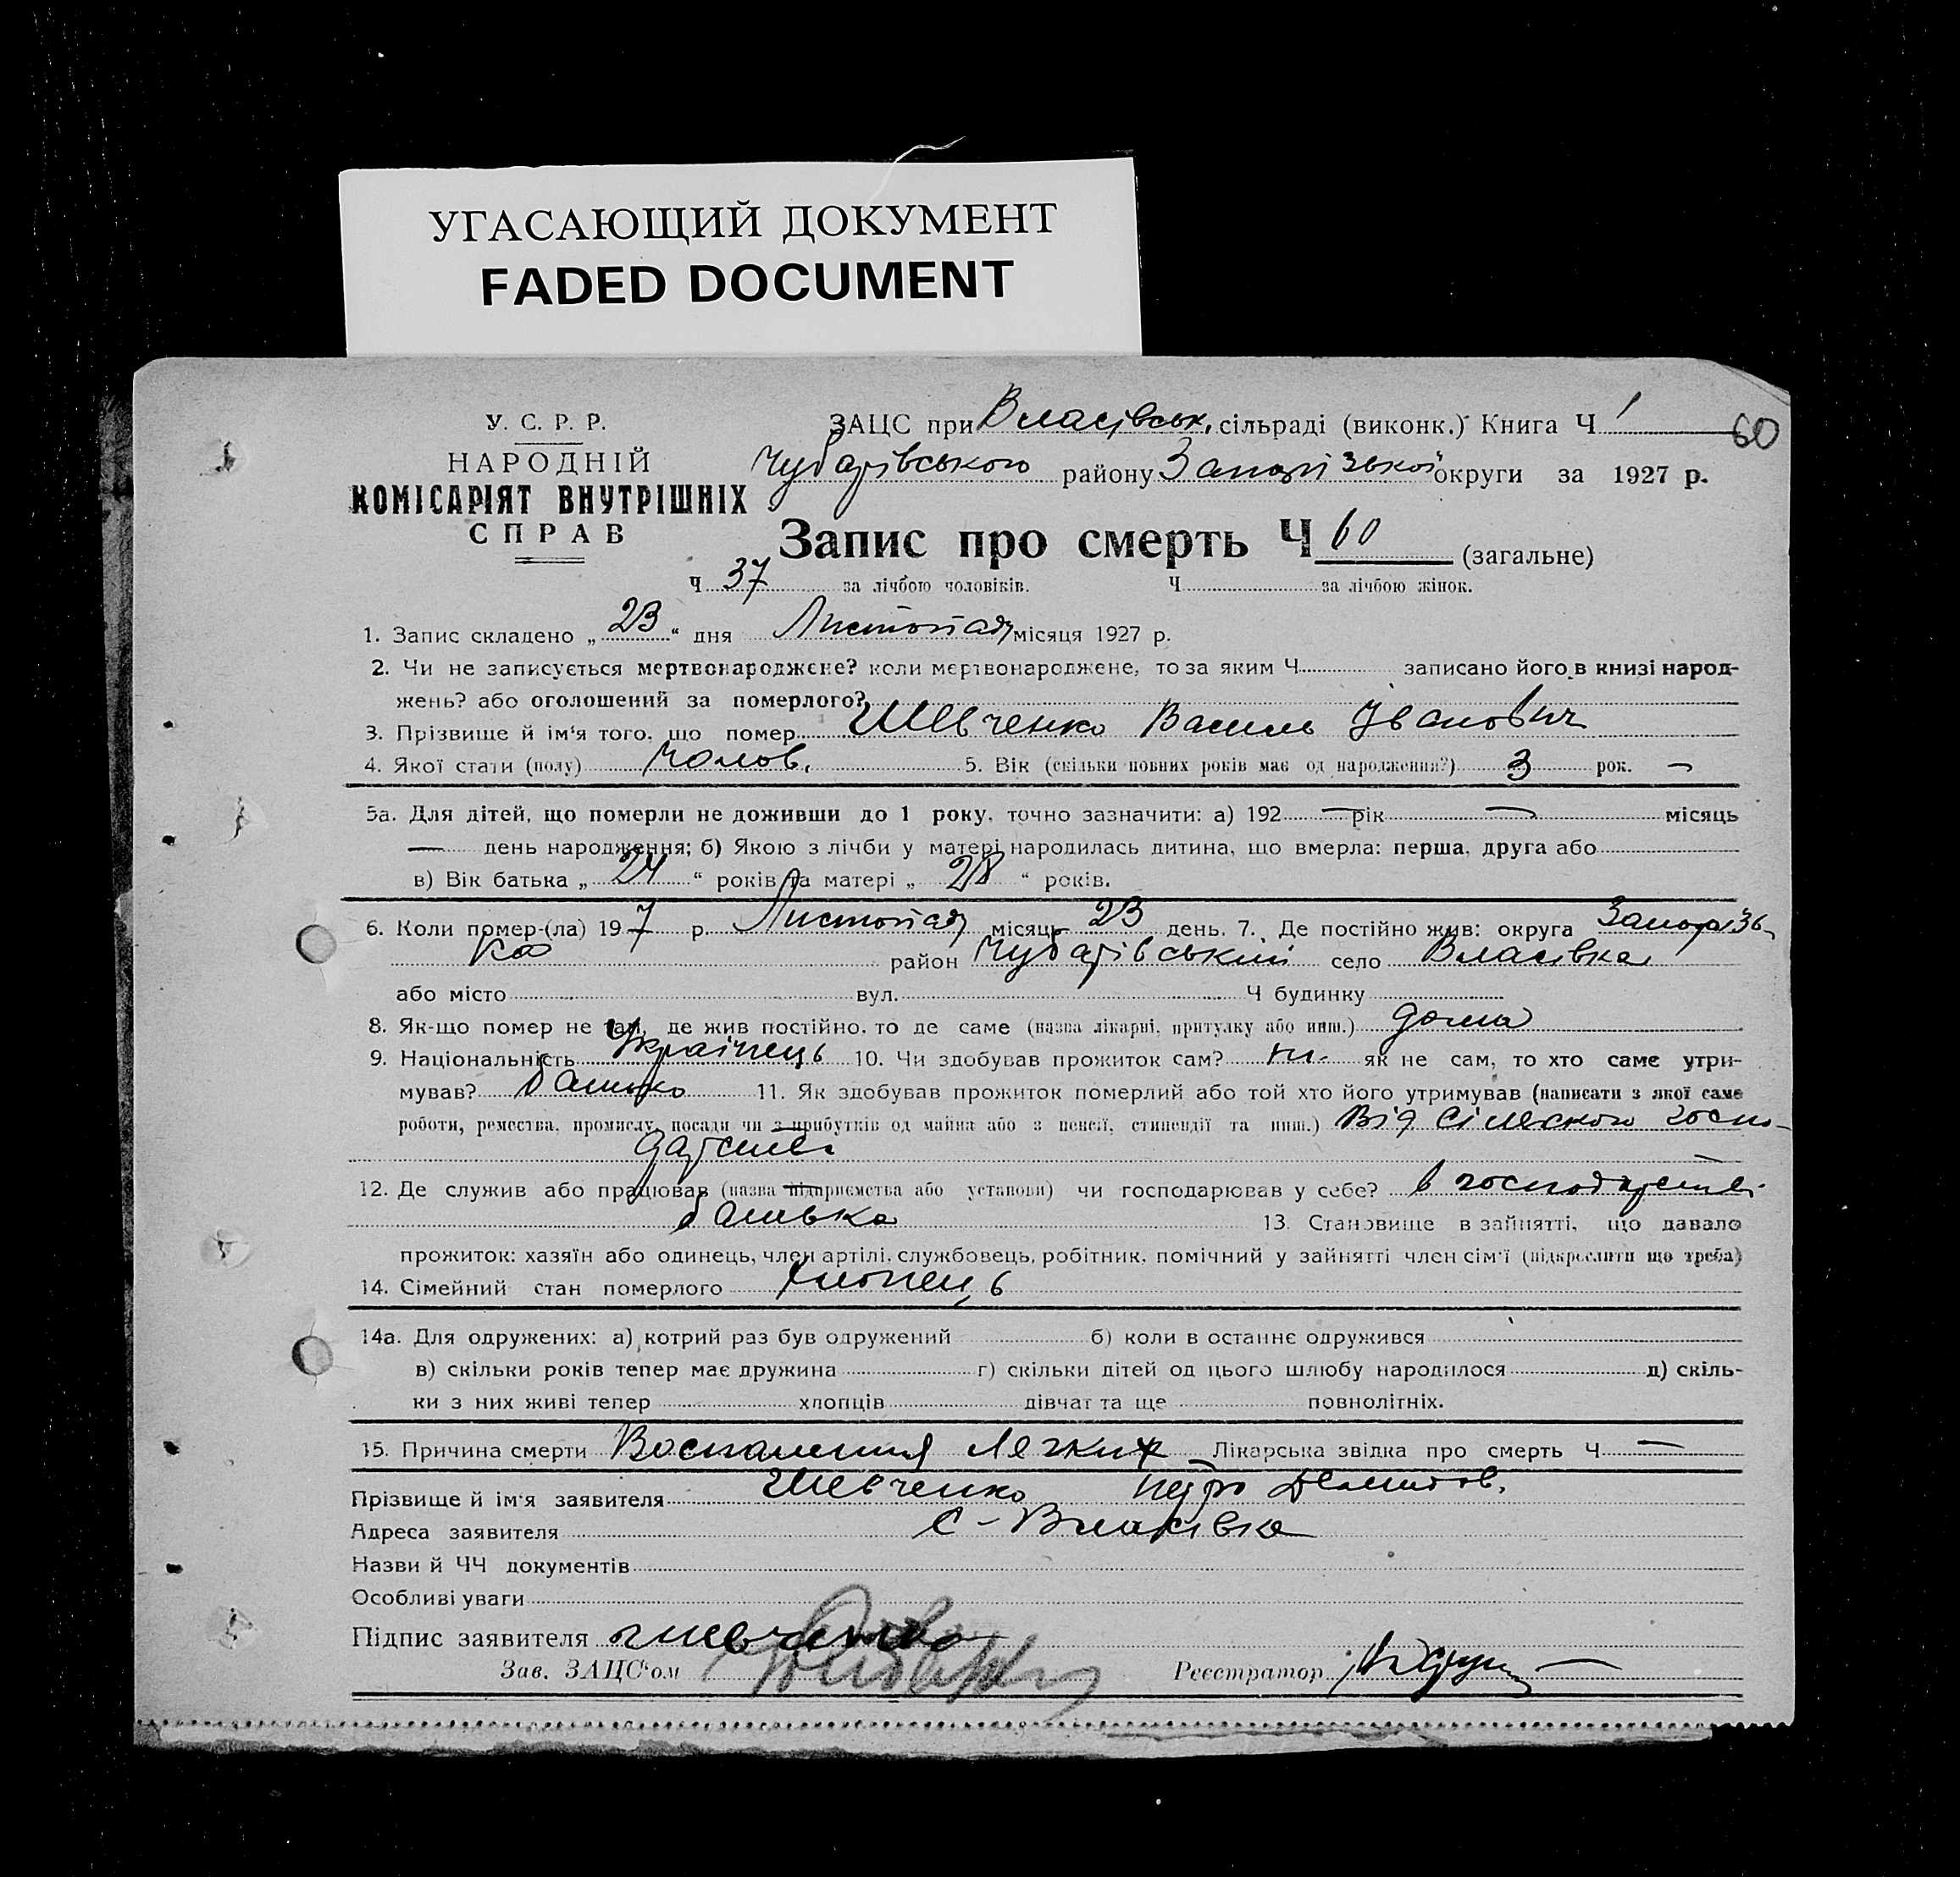 УГАСАЮЩИЙ ДОКУМЕНТ
FADED DOCUMENT
У. С. Р. Р.
НАРОДНІЙ
КОМІСАРІЯТ ВНУТРІШНІХ
СПРАВ
ЗАЦС при Власівськ. сільраді (виконк.) Книга Ч 1
60
Чубарівського району Запорізької округи за 1927 р.
Запис про смерть Ч 60 (загальне)
Ч 37 за лічбою чоловіків. Ч за лічбою жінок.
1. Запис складено „ 23 “ дня Листопада місяця 1927 р.
2. Чи не записується мертвонароджене? коли мертвонароджене, то за яким Ч записано його в книзі народ-
жень? або оголошений за померлого?
3. Прізвище й ім'я того, що помер Шевченко Василь Іванович
4. Якої стати (полу) Чолов. 5. Вік (скільки повних років має од народження?) 3 рок. —
5а. Для дітей, що померли не доживши до 1 року, точно зазначити: а) 192 — рік — місяць
— день народження; б) Якою з лічби у матері народилась дитина, що вмерла: перша, друга або
в) Вік батька „ 24 “ років та матері „ 28 “ років.
6. Коли помер-(ла) 19 7 р. Листопада місяць 23 день. 7. Де постійно жив: округа Запоріз-
ка район Чубарівський село Власівка
або місто вул. Ч будинку
8. Як-що помер не там, де жив постійно, то де саме (назва лікарні, притулку або инш.) дома
9. Національність Українець 10. Чи здобував прожиток сам? ні. як не сам, то хто саме утри-
мував? батько 11. Як здобував прожиток померлий або той хто його утримував (написати з якої саме
роботи, ремества, промислу, посади чи з прибутків од майна або з пенсії, стипендії та инш.) Від сільського госпо-
дарства
12. Де служив або працював (назва підприємства або установи) чи господарював у себе? в господарстві
батька 13. Становище в зайнятті, що давало
прожиток: хазяїн або одинець, член артілі, службовець, робітник, помічний у зайнятті член сім'ї (підкреслити що треба)
14. Сімейний стан померлого хлопець
14а. Для одружених: а) котрий раз був одружений б) коли в останнє одружився
в) скільки років тепер має дружина г) скільки дітей од цього шлюбу народилося д) скіль-
ки з них живі тепер хлопців дівчат та ще повнолітніх.
15. Причина смерти Воспаления Легких Лікарська звідка про смерть Ч —
Прізвище й ім'я заявителя Шевченко Петро
Адреса заявителя с - Власівка
Назви й ЧЧ документів
Особливі уваги
Підпис заявителя Шевченко
Зав. ЗАЦС'ом Реєстратор